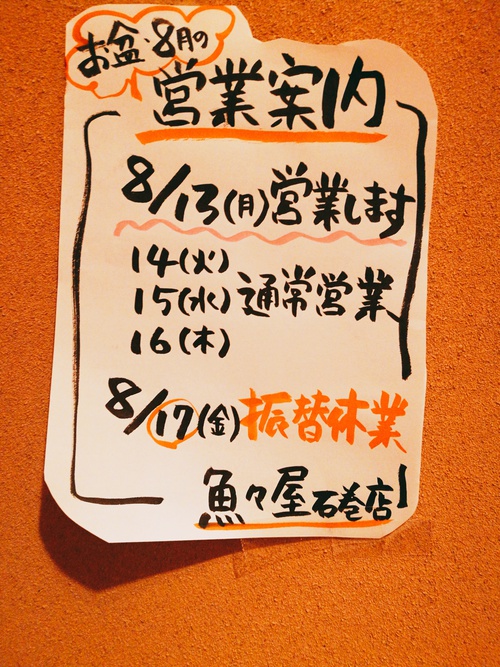 お盆・8月の
営業案内
8/13(月)営業します
14(火)
15(水)通常営業
16(木)
8/17(金)振替休業
魚々屋石巻店